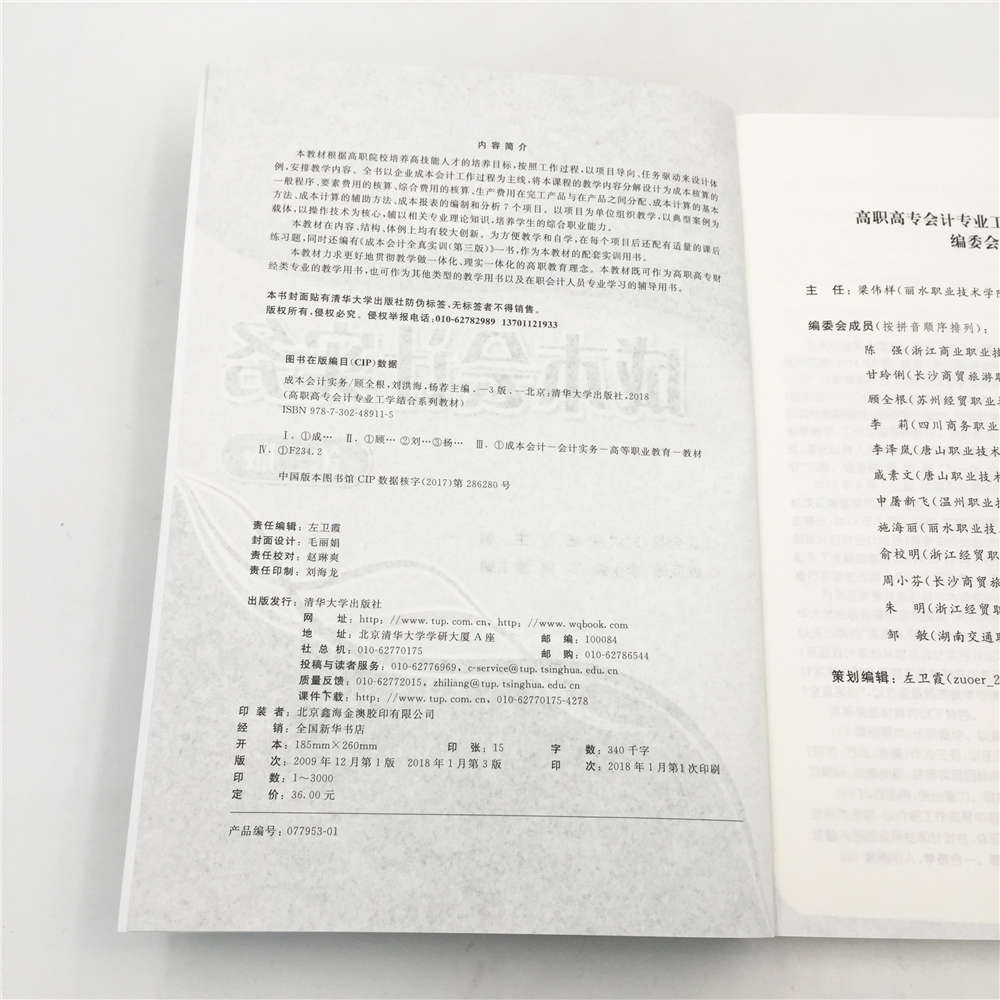 内容简介
本教材根据高职院校培养高技能人才的培养目标,按照工作过程,以项目导向、任务驱动来设计体
例,安排教学内容。全书以企业成本会计工作过程为主线,将本课程的教学内容分解设计为成本核算的
一般程序、要素费用的核算、综合费用的核算、生产费用在完工产品与在产品之间分配、成本计算的基本
方法、成本计算的辅助方法、成本报表的编制和分析7个项目。以项目为单位组织教学,以典型案例为
载体,以操作技术为核心,辅以相关专业理论知识,培养学生的综合职业能力。
本教材在内容、结构、体例上均有较大创新。为方便教学和自学,在每个项目后还配有适量的课后
练习题,同时还编有《成本会计全真实训(第三版)》一书,作为本教材的配套实训用书。
本教材力求更好地贯彻教学做一体化、理实一体化的高职教育理念。本教材既可作为高职高专财
经类专业的教学用书,也可作为其他类型的教学用书以及在职会计人员专业学习的辅导用书。
本书封面贴有清华大学出版社防伪标签,无标签者不得销售。
版权所有,侵权必究。侵权举报电话:010-62782989 13701121933
图书在版编目(CIP)数据
成本会计实务/顾全根,刘洪海,杨荐主编.—3版.—北京:清华大学出版社,2018
(高职高专会计专业工学结合系列教材)
ISBN 978-7-302-48911-5
Ⅰ.①成… Ⅱ.①顾… ②刘…③杨… Ⅲ.①成本会计-会计实务-高等职业教育-教材
Ⅳ.①F234.2
中国版本图书馆CIP数据核字(2017)第286280号
责任编辑:左卫霞
封面设计:毛丽娟
责任校对:赵琳爽
责任印制:刘海龙
出版发行:清华大学出版社
网 址:http://www.tup.com.cn, http://www.wqbook.com
地 址:北京清华大学学研大厦A座 邮 编:100084
社 总 机:010-62770175 邮 购:010-62786544
投稿与读者服务:010-62776969, c-service@tup.tsinghua.edu.cn
质量反馈:010-62772015, zhiliang@tup.tsinghua.edu.cn
课件下载:http://www.tup.com.cn, 010-62770175-4278
印 装 者:北京鑫海金澳胶印有限公司
经 销:全国新华书店
开 本:185mm×260mm 印 张:15 字 数:340千字
版 次:2009年12月第1版 2018年1月第3版 印 次:2018年1月第1次印刷
印 数:1~3000
定 价:36.00元
产品编号:077953-01
高职高专会计专业工
编委会
主 任:梁伟样(丽水职业技术学院
编委会成员(按拼音顺序排列):
陈 强(浙江商业职业技
甘玲俐(长沙商贸旅游职
顾全根(苏州经贸职业
李 莉(四川商务职业
李泽岚(唐山职业技术
戚素文(唐山职业技术
申屠新飞(温州职业技
施海丽(丽水职业技术
俞校明(浙江经贸职
周小芬(长沙商贸旅
朱 明(浙江经贸职
邹 敏(湖南交通职
策划编辑:左卫霞(zuoer_2